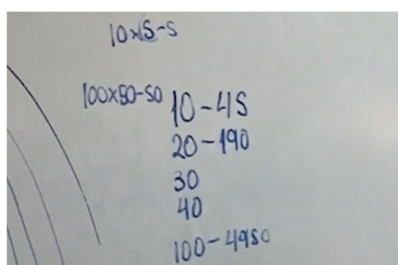 10×5-5
100×50-50
10-45
20-190
30
40
100-4950